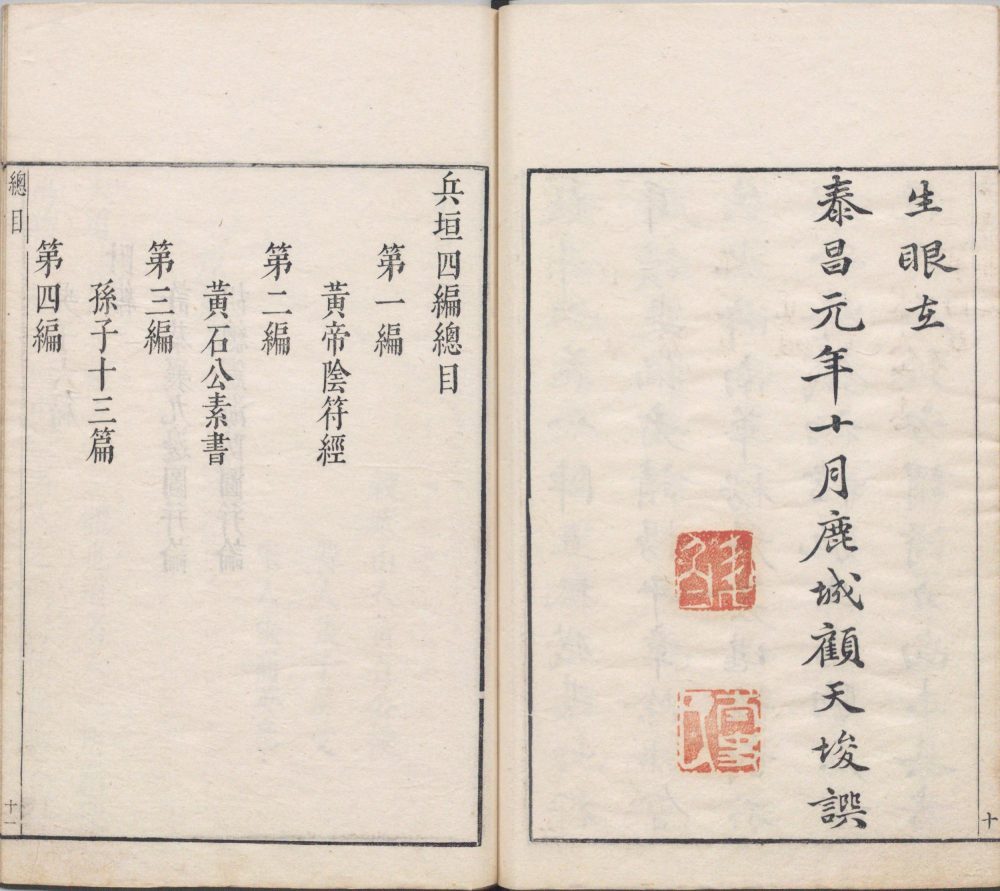 生眼在
泰昌元年十月鹿城顧天埈譔
十
兵垣四編總目
第一編
黃帝陰符經
第二編
黃石公素書
第三編
孫子十三篇
第四編
總目
十一